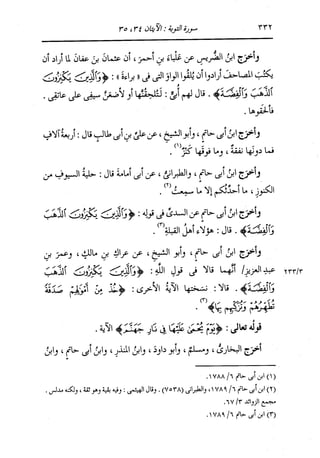 ٣٣٢
سورة التوبة : الآيتان ٣٤، ٣٥
وأخرَج ابنُ الضُّريسِ عن عَلباءَ بنِ أحمرَ، أن عثمانَ بنَ عفانَ لما أراد أن
يكتُبَ المصاحفَ أرادوا أن يُلقُوا الواوَ التي في «براءة» : ﴿وَٱلَّذِينَ يَكْنِزُونَ
ٱلذَّهَبَ وَٱلْفِضَّةَ﴾. قال لهم أُبيٌّ : لتُلحِقُنَّها أو لأضعَنَّ سيفى على عاتقى .
فألحَقوها .
وأخرَج ابنُ أبى حاتمٍ، وأبو الشيخِ، عن علىِّ بنِ أبى طالبٍ قال : أربعةُ آلافٍ
فما دونَها نفقةٌ، وما فوقَها كَنْزٌ(١) .
وأخرَج ابنُ أبى حاتمٍ، والطبرانىُّ، عن أبى أمامةَ قال : حِليةُ السيوفِ من
الكنوزِ، ما أحدِّثُكم إلا ما سمِعتُ(٢) .
وأخرَج ابنُ أبى حاتمٍ عن السدىِّ فى قولِه : ﴿وَٱلَّذِينَ يَكْنِزُونَ ٱلذَّهَبَ
وَٱلْفِضَّةَ﴾. قال : هؤلاء أهلُ القبلةِ(٣) .
وأخرَج ابنُ أبى حاتمٍ، وأبو الشيخِ، عن عِراكِ بنِ مالكٍ، وعمرَ بنِ
عبدِ العزيزِ/ أنَّهما قالا فى قولِ اللَّهِ : ﴿وَٱلَّذِينَ يَكْنِزُونَ ٱلذَّهَبَ
٢٣٣/٣
وَٱلْفِضَّةَ﴾. قالا : نسَختها الآيةُ الأخرى : ﴿خُذْ مِنْ أَمْوَٰلِهِمْ صَدَقَةً
تُطَهِّرُهُمْ وَتُزَكِّيهِم بِهَا﴾(٣) .
قولُه تعالى : ﴿يَوْمَ يُحْمَىٰ عَلَيْهَا فِى نَارِ جَهَنَّمَ﴾ الآية .
أخرَج البخارىُّ، ومسلمٌ، وأبو داودَ، وابنُ المنذرِ، وابنُ أبى حاتمٍ، وابنُ
(١) ابن أبى حاتم ٦/ ١٧٨٨.
(٢) ابن أبى حاتم ٦/ ١٧٨٩، والطبرانى (٧٥٣٨) . وقال الهيثمى : وفيه بقية وهو ثقة ، ولكنه مدلس .
مجمع الزوائد ٣/ ٦٧.
(٣) ابن أبى حاتم ٦/ ١٧٨٩.